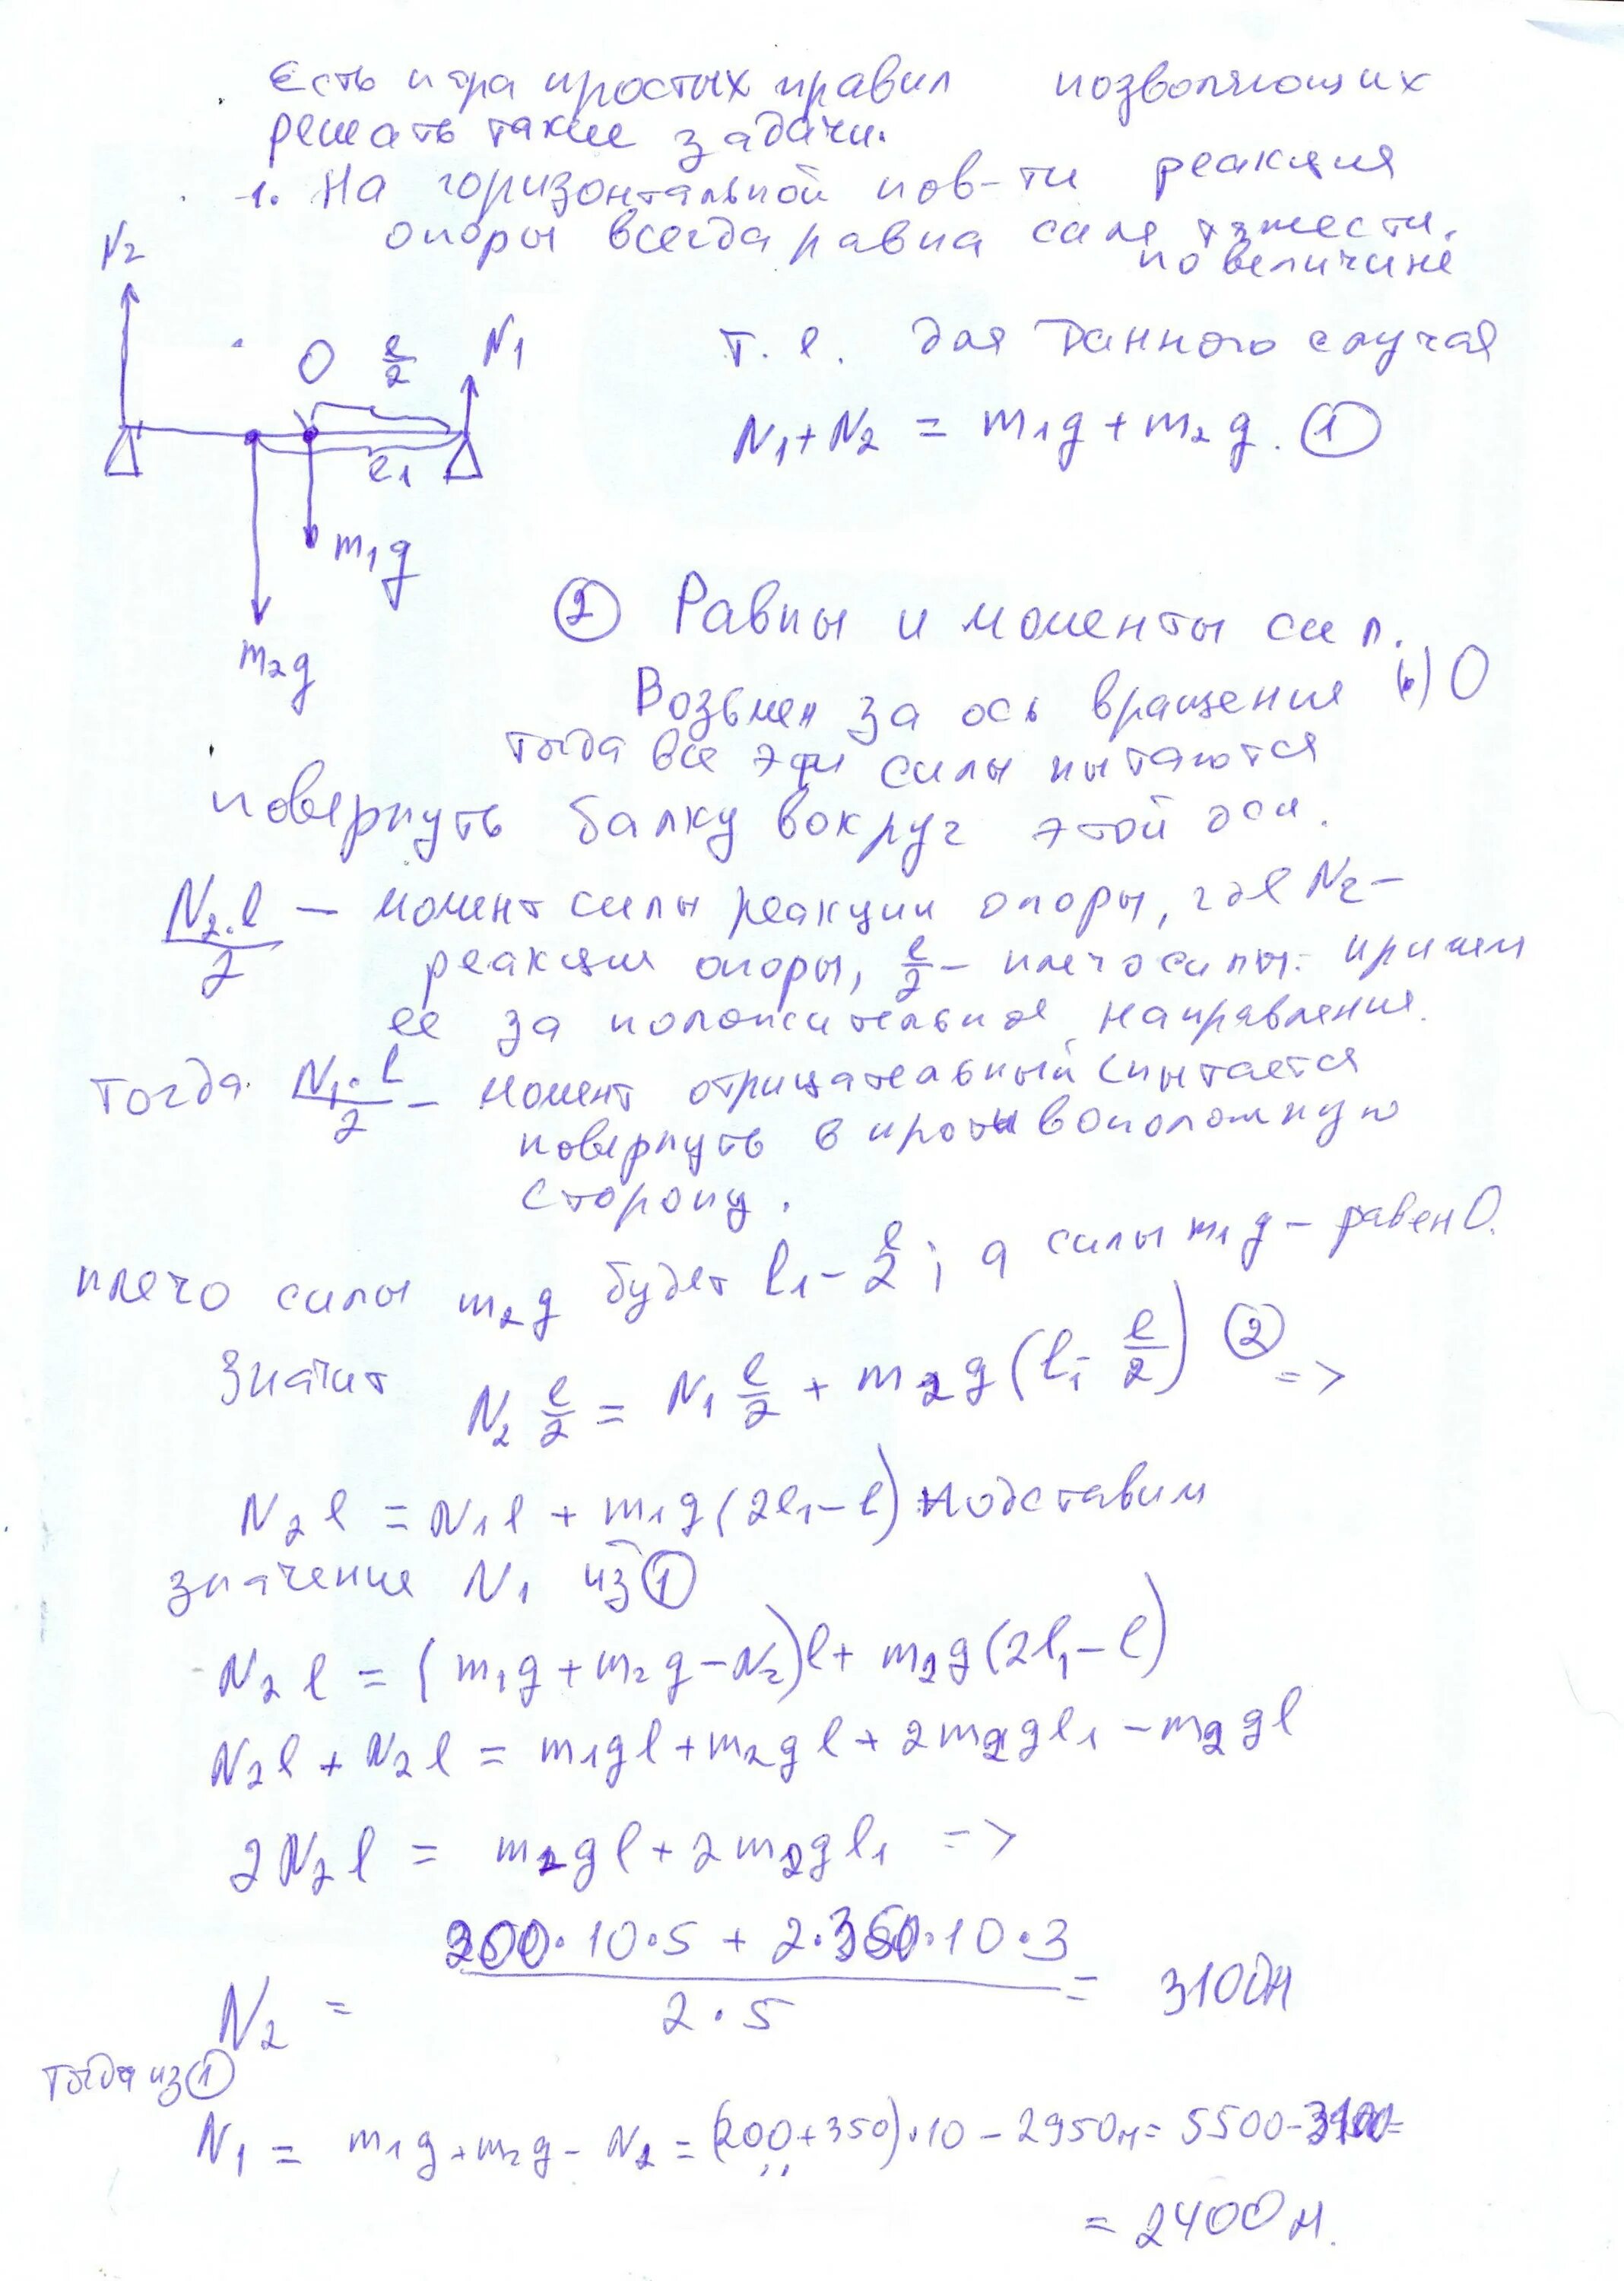 Есть пара простых правил позволяющих
решать такие задачи.
1. На горизонтальной пов-ти реакция
опоры всегда равна силе тяжести.
по величине
N2
O l/2 N1
l1
m1g
m2g
т.е. для данного случая
N1+N2 = m1g+m2g. ①
② Равны и моменты сил.
Возьмем за ось вращения (·) O
тогда все эти силы пытаются
повернуть балку вокруг этой оси.
N2·l/2 — момент силы реакции опоры, где N2 –
реакция опоры, l/2 – плечо силы. примем
ее за положительное направление.
Тогда N1·l/2 – момент отрицательный (пытается
повернуть в противоположную
сторону.
плечо силы m2g будет l1 – l/2; а силы m1g – равен 0.
Значит N2 l/2 = N1 l/2 + m2g(l1 - l/2) ② =>
N2l = N1l + m1g(2l1–l) подставим
значение N1 из ①
N2l = (m1g+m2g–N2)l+ m2g(2l1–l)
N2l + N2l = m1gl+m2gl+2m2gl1 –m2gl
2N2l = m1gl+2m2gl1 =>
N2 = 200·10·5 + 2·350·10·3 / 2·5 = 3100н
Тогда из ①
N1 = m1g+m2g – N2 = (200+350)·10 – 2950н = 5500–3100=
= 2400н.